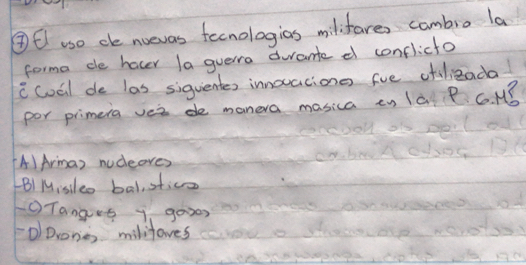 ⑦ El uso de nuevas tecnologias militares cambio la
forma de hacer la guerra durante el conflicto
¿Cuál de las siguientes innovaciones fue utilizada
por primera vez de manera masica en la P.G.M?
A) Armas nucleares
B) Misiles balisticos
C) Tanques y gases
D) Drones militares